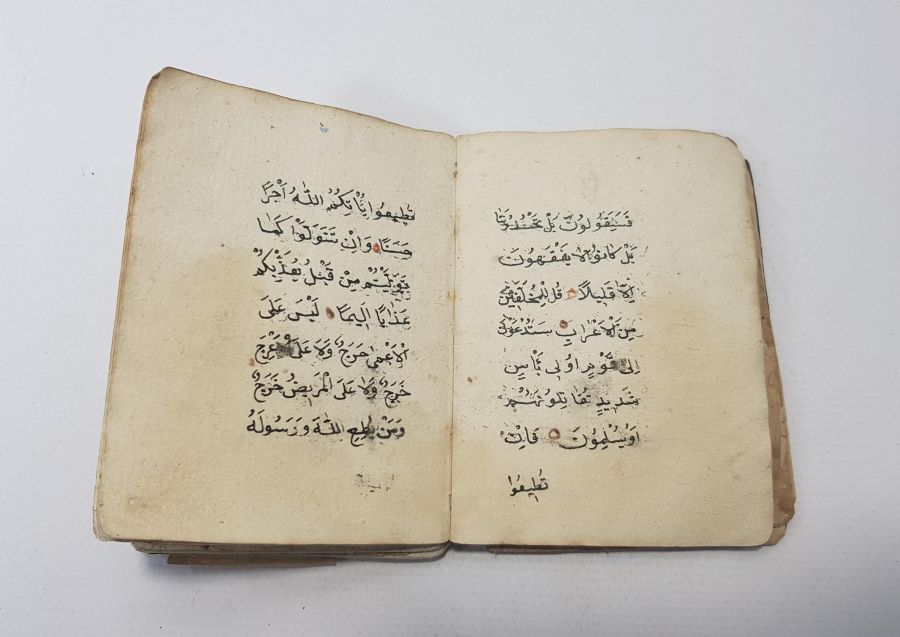 فَسَيَقُولُونَ بَلْ تَحْسُدُونَنَا
بَلْ كَانُوا لَا يَفْقَهُونَ
اِلَّا قَلِيلًا قُلْ لِلْمُخَلَّفِينَ
مِنَ الْاَعْرَابِ سَتُدْعَوْنَ
اِلٰى قَوْمٍ اُولٖى بَأْسٍ
شَدٖيدٍ تُقَاتِلُونَهُمْ
اَوْ يُسْلِمُونَ فَاِنْ
تُطٖيعُوا
تُطٖيعُوا يُؤْتِكُمُ اللّٰهُ اَجْرًا
حَسَنًا وَاِنْ تَتَوَلَّوْا كَمَا
تَوَلَّيْتُمْ مِنْ قَبْلُ يُعَذِّبْكُمْ
عَذَابًا اَلٖيمًا لَيْسَ عَلَى
الْاَعْمٰى حَرَجٌ وَلَا عَلَى الْاَعْرَجِ
حَرَجٌ وَلَا عَلَى الْمَرٖيضِ حَرَجٌ
وَمَنْ يُطِعِ اللّٰهَ وَرَسُولَهُ